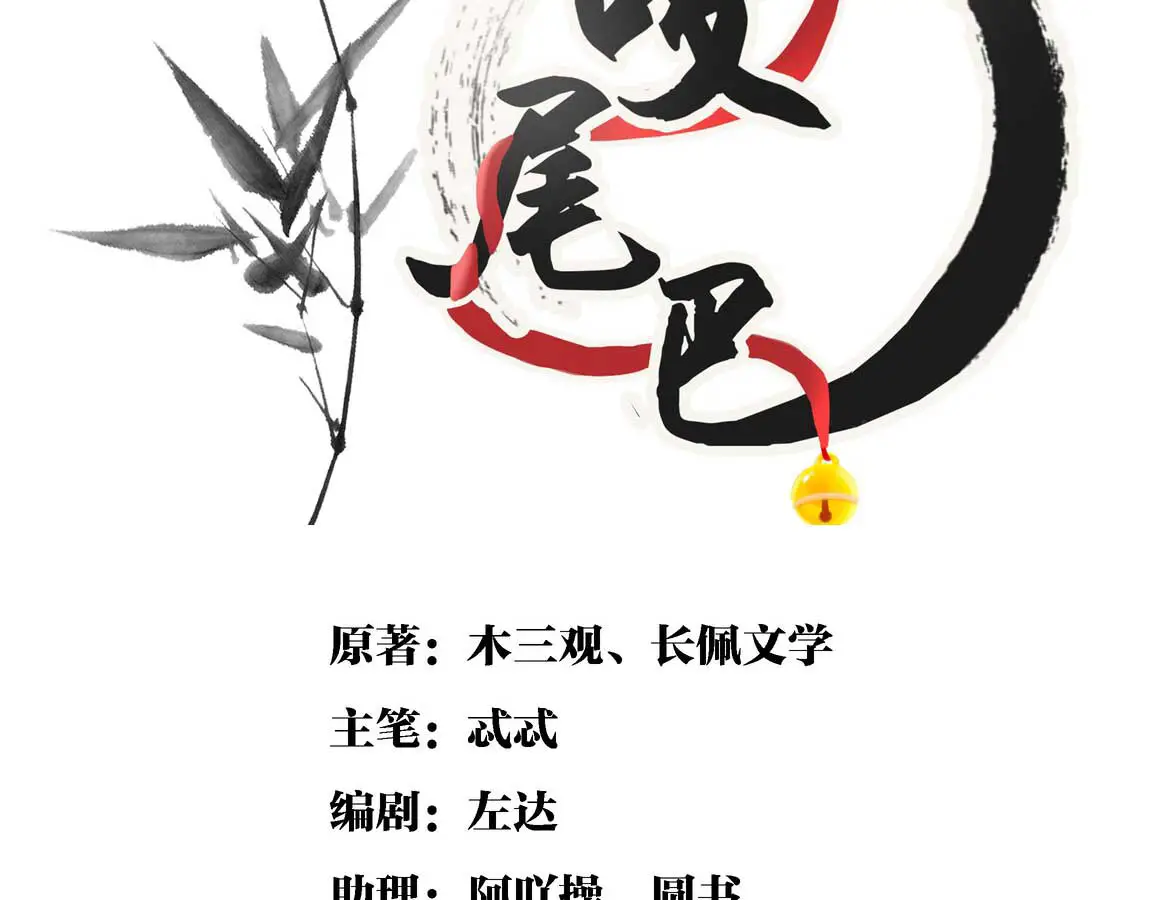 尾
巴
原著：木三观、长佩文学
主笔：忒忒
编剧：左达
助理：阿吖操、圆书